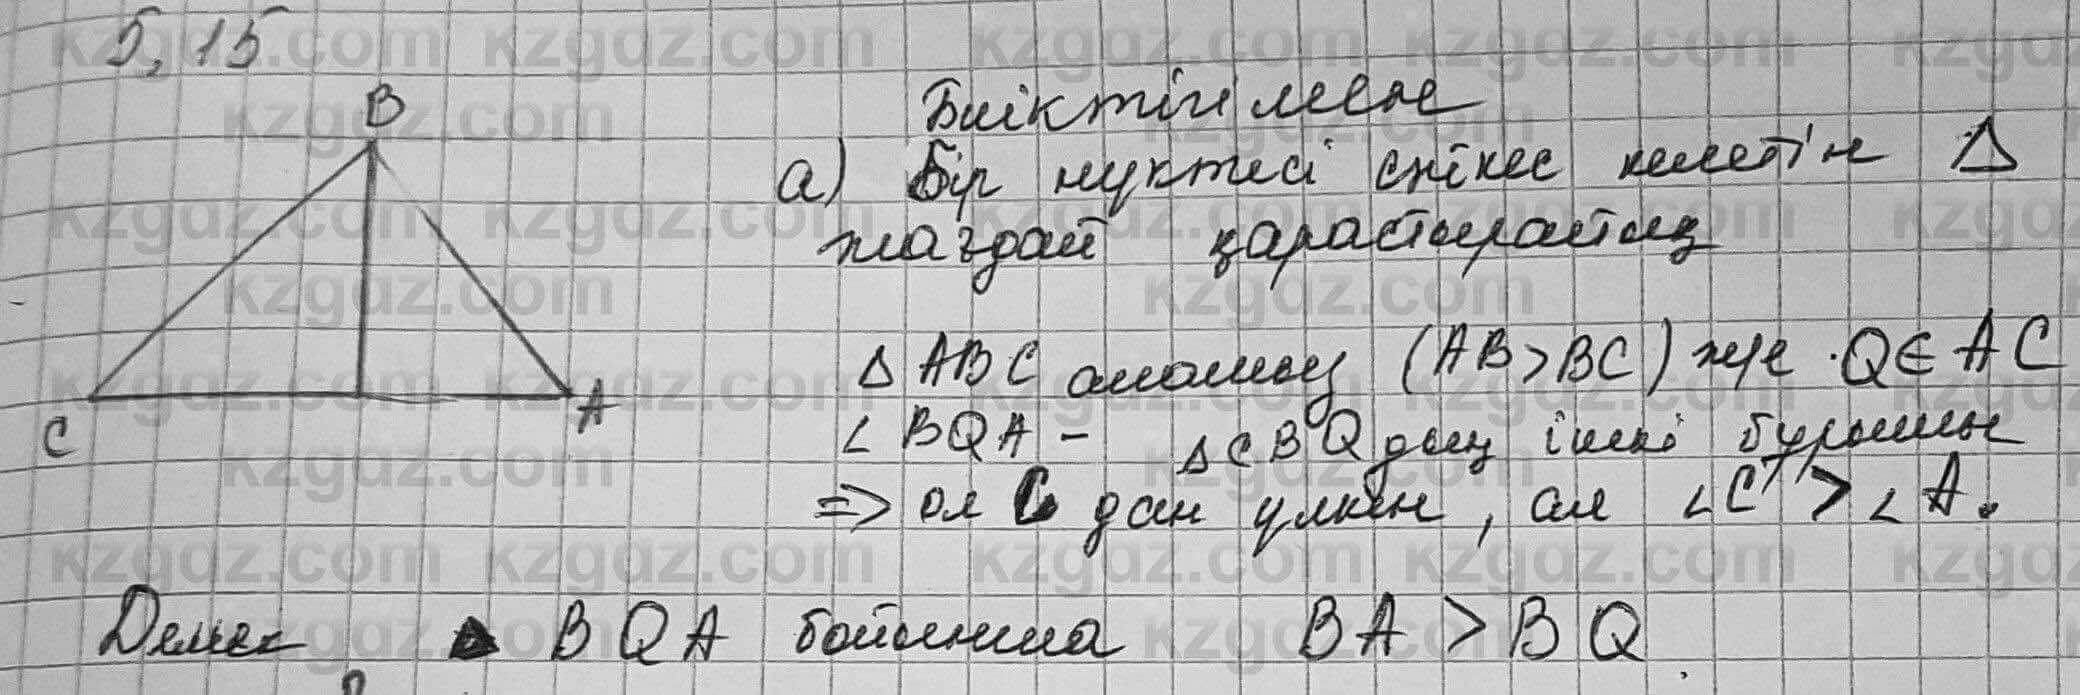 5,15
B
C
A
Биіктігі мене
а) Бір нүктесі сәйкес келетін Δ
жағдай қарастырайық
Δ ABC аламыз (AB>BC) және Q∈AC
∠ BQA - ΔCBQ дың ішкі бұрышы
=> ол C дан үлкен, ал ∠C > ∠A.
Демек Δ BQA бойынша BA > BQ
kzgdz.com